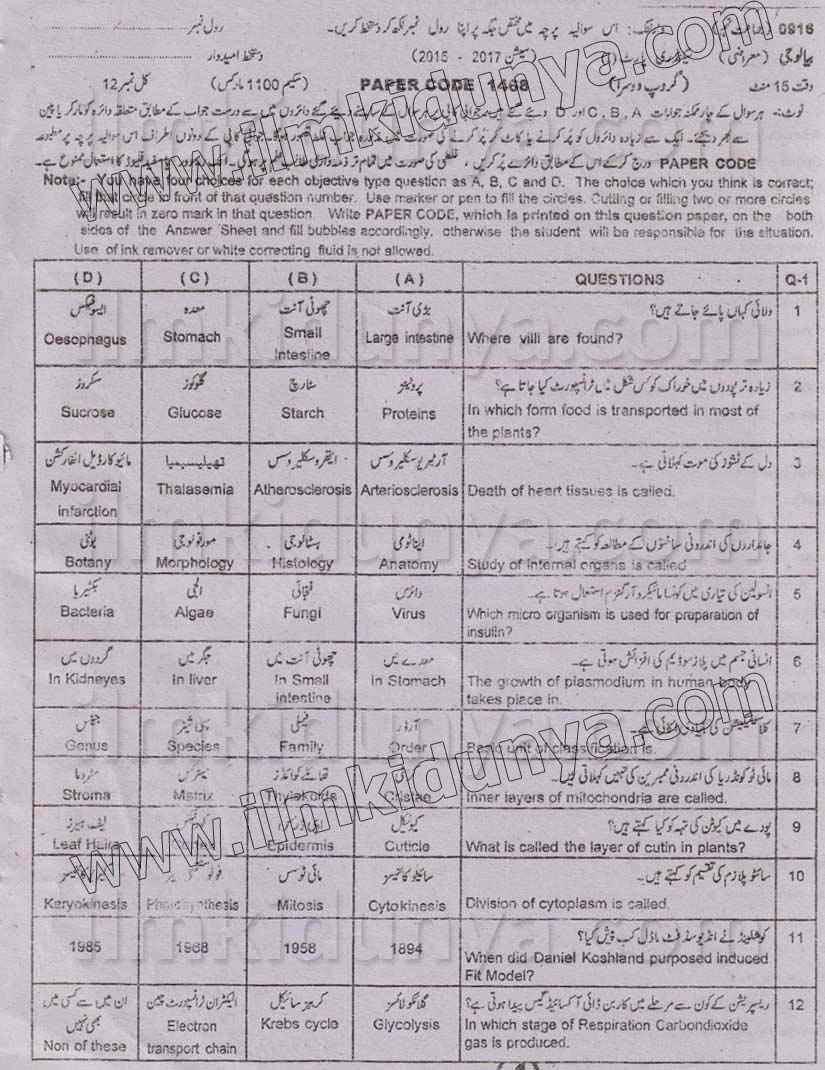 0916 رول نمبر لکھ کر دستخط کریں۔ رول نمبر
بیالوجی (معروضی) (سیشن 2017 - 2015) دستخط امیدوار
وقت 15 منٹ (گروپ دوسرا) PAPER CODE 1468 (سکیم 1100 مارکس) کل نمبر 12
نوٹ:- ہر سوال کے چار ممکنہ جوابات A ,B ,C اور D دیئے گئے ہیں۔ درست جواب کے مطابق متعلقہ دائرہ کو مارکر یا پین
سے بھر دیجئے۔ ایک سے زیادہ دائروں کو پُر کرنے یا کاٹ کر پُر کرنے کی صورت میں
PAPER CODE درج کر کے اس کے مطابق دائرے پُر کریں، غلطی کی صورت میں تمام تر ذمہ داری کا استعمال ممنوع ہے۔
Note:- You have four choices for each objective type question as A, B, C and D. The choice which you think is correct;
fill that circle in front of that question number. Use marker or pen to fill the circles. Cutting or filling two or more circles
will result in zero mark in that question. Write PAPER CODE, which is printed on this question paper, on the both
sides of the Answer Sheet and fill bubbles accordingly, otherwise the student will be responsible for the situation.
Use of ink remover or white correcting fluid is not allowed.
(D) (C) (B) (A) QUESTIONS Q-1
ولائی کہاں پائے جاتے ہیں؟ 1
بڑی آنت چھوٹی آنت معدہ ایسوفیگس
Oesophagus Stomach Small Intestine Large intestine Where villi are found?
زیادہ تر پودوں میں خوراک کو کس شکل میں ٹرانسپورٹ کیا جاتا ہے؟ 2
پروٹینز سٹارچ گلوکوز سکروز
Sucrose Glucose Starch Proteins In which form food is transported in most of
the plants?
دل کے ٹشوز کی موت کہلاتی ہے۔ 3
آرٹیریوسکلیروسس ایتھروسکلیروسس تھیلیسیمیا مائیوکارڈیل انفارکشن
Myocardial infarction Thalasemia Atherosclerosis Arteriosclerosis Death of heart tissues is called.
جانداروں کی اندرونی ساختوں کے مطالعہ کو کہتے ہیں۔ 4
اناٹومی ہسٹالوجی مورفولوجی بوٹنی
Botany Morphology Histology Anatomy Study of internal organs is called
انسولین کی تیاری میں کونسا مائیکرو آرگنزم استعمال ہوتا ہے۔ 5
وائرس فنجائی الجی بیکٹیریا
Bacteria Algae Fungi Virus Which micro organism is used for preparation of
insulin?
انسانی جسم میں پلازموڈیم کی افزائش ہوتی ہے۔ 6
معدے میں چھوٹی آنت میں جگر میں گردوں میں
In Kidneyes In liver In Small intestine In Stomach The growth of plasmodium in human body
takes place in.
کلاسیفیکیشن کی بنیادی اکائی ہے۔ 7
آرڈر فیملی سپی شیز جینس
Genus Species Family Order Basic unit of classification is.
مائی ٹوکونڈریا کی اندرونی ممبرین کی تہیں کہلاتی ہیں۔ 8
تھائلے کوائڈز میٹرکس سٹروما
Stroma Matrix Thylakoids Cristae Inner layers of mitochondria are called.
پودے میں کیوٹن کی تہہ کو کیا کہتے ہیں؟ 9
کیوٹیکل لیف ہیرز
Leaf Hairs Epidermis Cuticle What is called the layer of cutin in plants?
سائٹوپلازم کی تقسیم کو کہتے ہیں۔ 10
سائیٹوکائنیسز مائی ٹوسس
Karyokinesis Photosynthesis Mitosis Cytokinesis Division of cytoplasm is called.
کوشلینڈ نے انڈیوسڈ فٹ ماڈل کب پیش کیا؟ 11
1985 1968 1958 1894 When did Daniel Koshland purposed induced
Fit Model?
ریسپریشن کے کون سے مرحلے میں کاربن ڈائی آکسائیڈ گیس پیدا ہوتی ہے؟ 12
گلائکولائسز کریبز سائیکل الیکٹران ٹرانسپورٹ چین ان میں سے کسی میں بھی نہیں
Non of these Electron transport chain Krebs cycle Glycolysis In which stage of Respiration Carbondioxide
gas is produced.
www.ilmkidunya.com
www.ilmkidunya.com
ilmkidunya.com
ilmkidunya.com
ilmkidunya.com
ilmkidunya.com
ilmkidunya.com